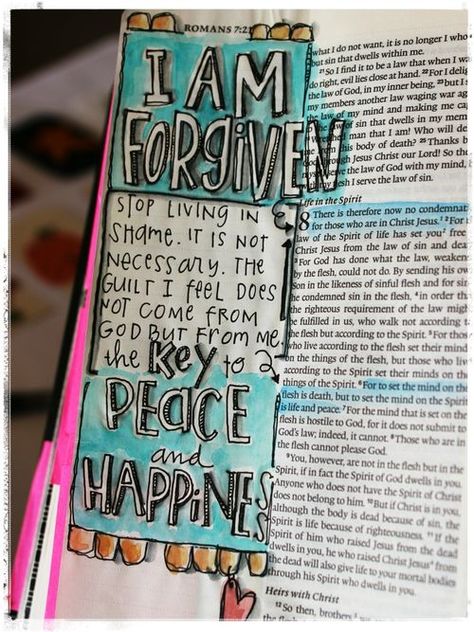 ROMANS 7:21
I AM
FORGIVEN
STOP LIVING IN
SHAME. IT IS NOT
NECESSARY. THE
GUILT I FEEL DOES
NOT COME FROM
GOD BUT FROM ME
the KEY to 2
PEACE
and
HAPPINESS
what I do not want, it is no longer I who
but sin that dwells within me.
21 So I find it to be a law that when I wa
do right, evil lies close at hand. 22 For I deli
the law of God, in my inner being, 23 but I s
my members another law waging war ag
the law of my mind and making me ca
the law of sin that dwells in my mem
Wretched man that I am! Who will de
me from this body of death? 25 Thanks b
God through Jesus Christ our Lord! So the
I myself serve the law of God with my mind,
with my flesh I serve the law of sin.
Life in the Spirit
8 There is therefore now no condemnat
for those who are in Christ Jesus. 2 For t
law of the Spirit of life has set you free
Christ Jesus from the law of sin and dea
3 For God has done what the law, weaken
by the flesh, could not do. By sending his ow
Son in the likeness of sinful flesh and for sin
he condemned sin in the flesh, 4 in order th
the righteous requirement of the law migh
be fulfilled in us, who walk not according t
the flesh but according to the Spirit. 5 For thos
who live according to the flesh set their mind
on the things of the flesh, but those who liv
according to the Spirit set their minds on the
things of the Spirit. 6 For to set the mind on th
flesh is death, but to set the mind on the Spiri
is life and peace. 7 For the mind that is set on th
flesh is hostile to God, for it does not submit to
God's law; indeed, it cannot. 8 Those who are in
the flesh cannot please God.
9 You, however, are not in the flesh but in the
Spirit, if in fact the Spirit of God dwells in you.
Anyone who does not have the Spirit of Christ
does not belong to him. 10 But if Christ is in you,
although the body is dead because of sin, the
Spirit is life because of righteousness. 11 If the
Spirit of him who raised Jesus from the dead
dwells in you, he who raised Christ Jesus from
the dead will also give life to your mortal bodies
through his Spirit who dwells in you.
Heirs with Christ
12 So then, brothers, we are